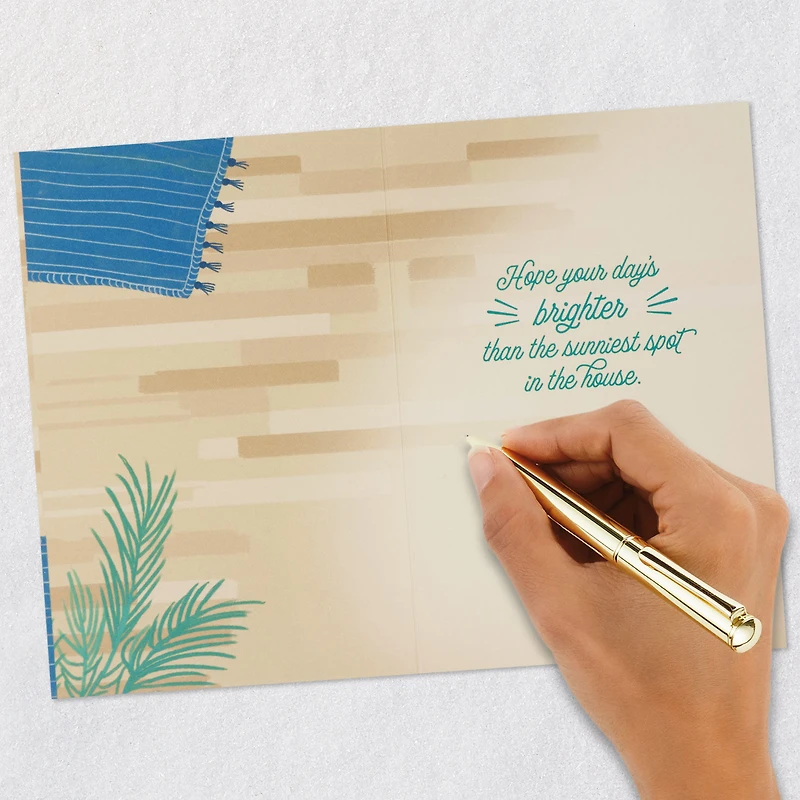 Hope your day's
brighter
than the sunniest spot
in the house.